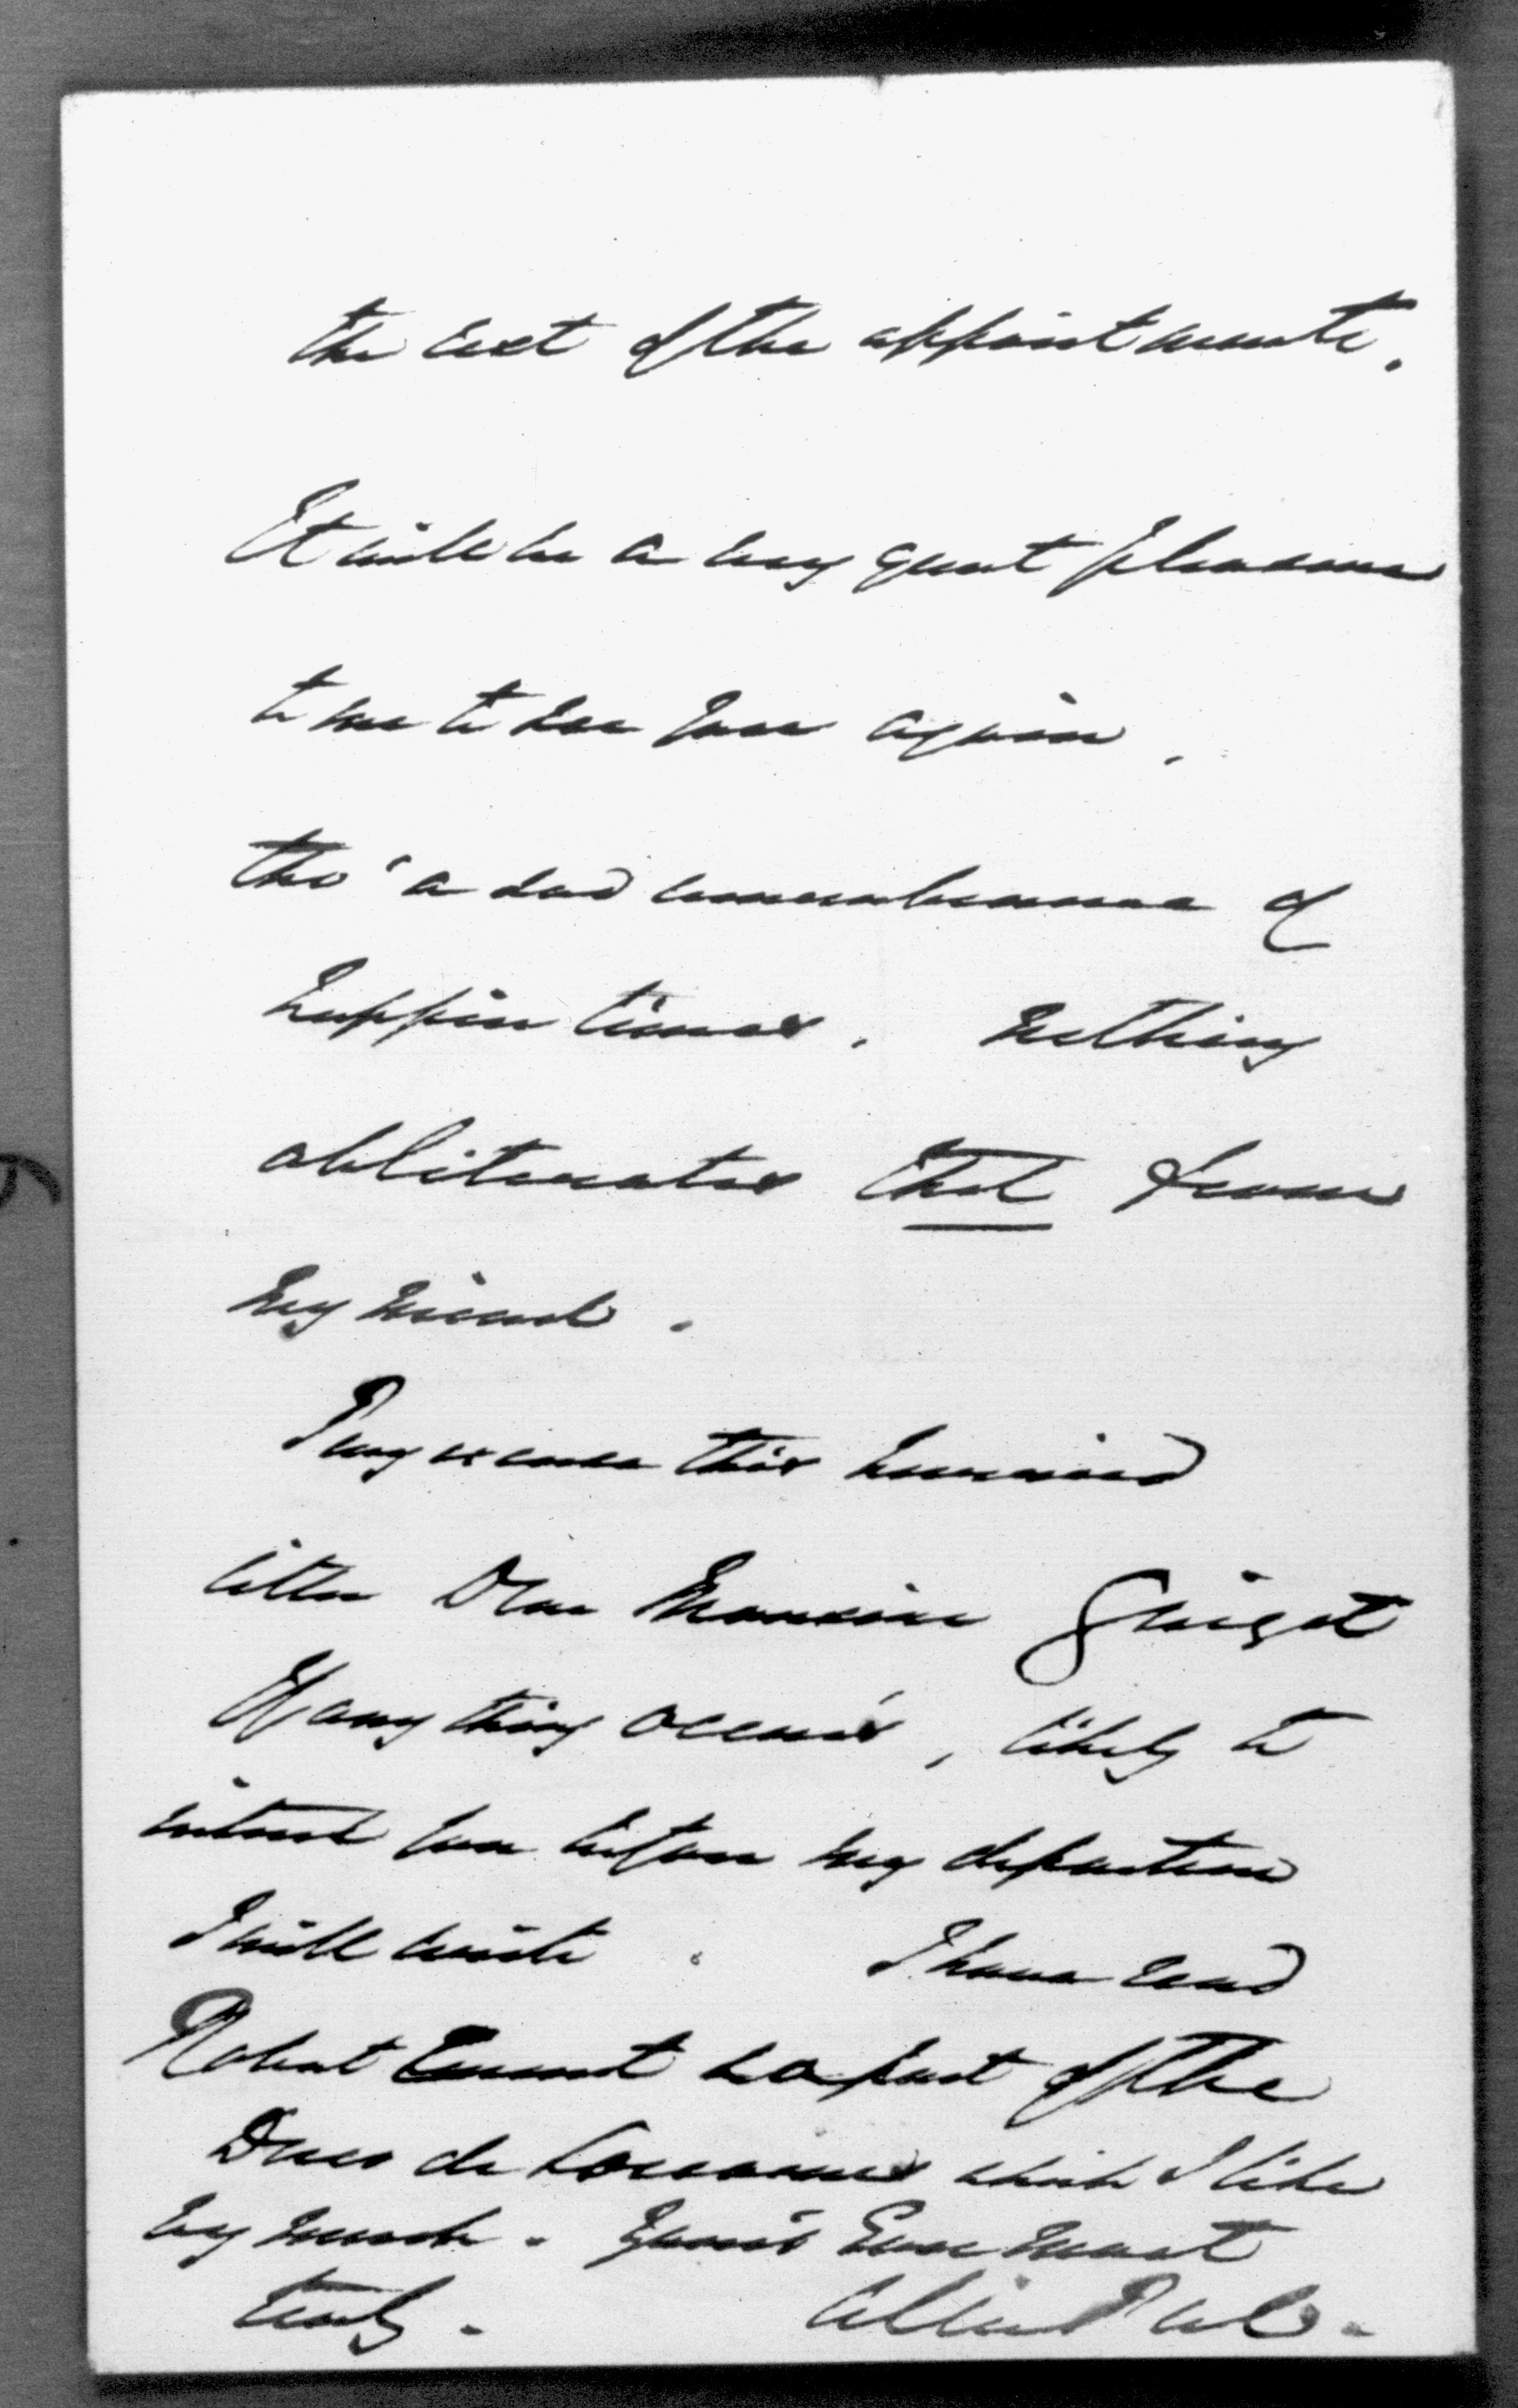 the rest of the appointments.
It will be a very great pleasure
to me to see you again,
tho' a sad remembrance of
happier times. nothing
obliterates that from
my mind.
Pray excuse this hurried
letter Dear Monsieur Guizot
If any thing occurs, likely to
interest you before my departure
I will write. I have read
Robert Emmet  part of the
Duc de  which I like
very much. Yours Ever most
truly.